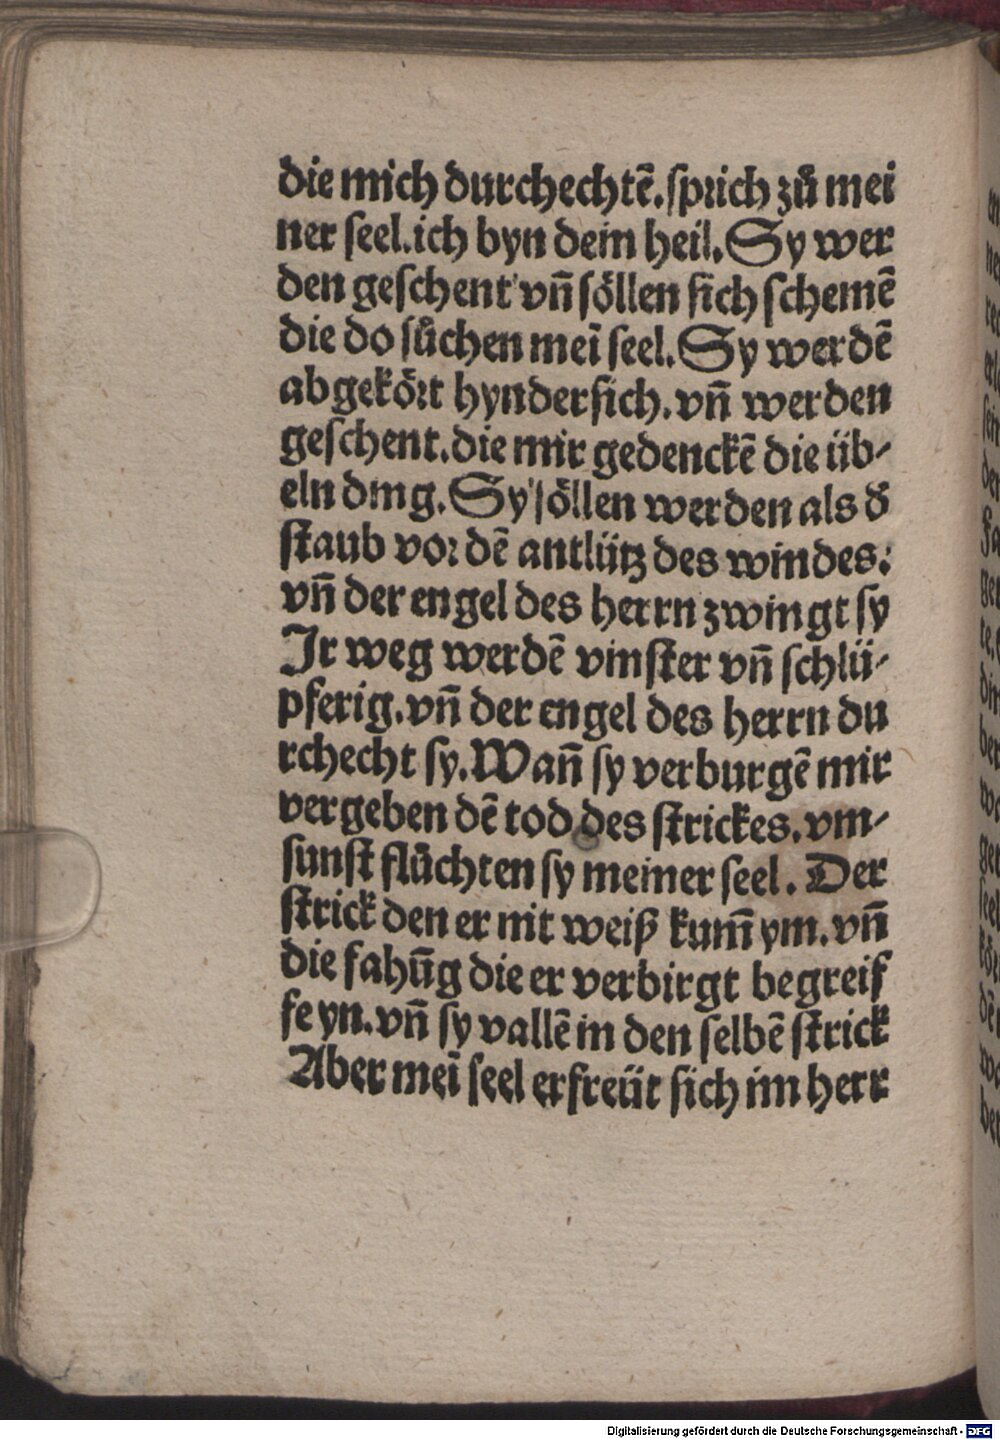 die mich durchechtē.sprich zů mei
ner seel.ich byn dein heil.Sy wer
den geschent vn̄ söllen sich schemē
die do sůchen mei seel.Sy werdē
abgekört hyndersich.vn̄ werden
geschent.die mir gedenckē die üb⸗
eln ding.Sy söllen werden als d̕
staub vor dē antlütz des windes:
vn̄ der engel des herrn zwingt sy
Ir weg werdē vinster vn̄ schlü⸗
pferig.vn̄ der engel des herrn du
rchecht sy.Wan̄ sy verburgē mir
vergeben dē tod des strickes.vm⸗
sunst flůchten sy meiner seel. Der
strick den er nit weiß kum̄ ym.vn̄
die fahūg die er verbirgt begreif
fe yn.vn̄ sy vallē in den selbē strick
Aber meī seel erfreüt sich im herr
Digitalisierung gefördert durch die Deutsche Forschungsgemeinschaft - DFG